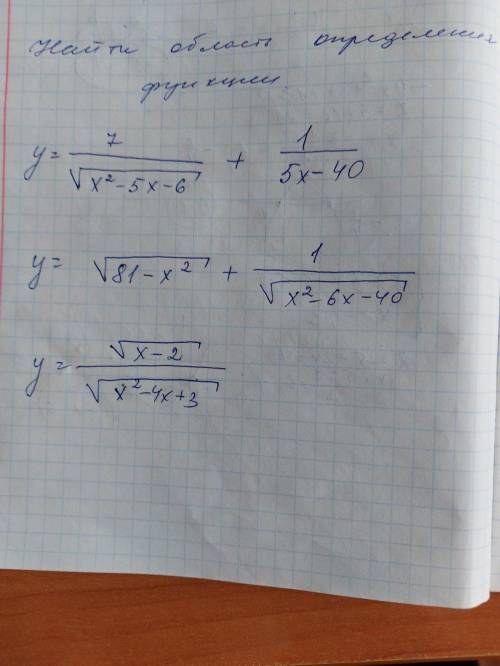 Найти область определения
функции.
y = 7/√(x²-5x-6) + 1/(5x-40)
y = √(81-x²) + 1/√(x²-6x-40)
y = √(x-2)/√(x²-4x+3)